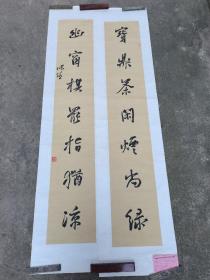 寶鼎茶閑煙尚綠
幽窗棋罷指猶涼